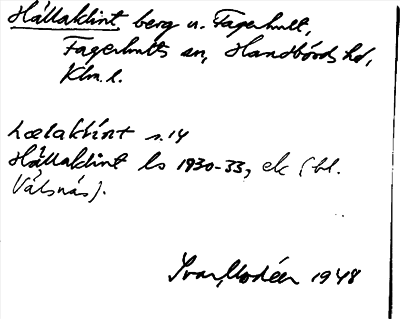 Hållaklint berg n. Fagerhult,
Fagerhults sn, Handbörds hd,
Klm. l.
hælaklint s. 14
Hållaklint ls 1930-33, ek (bl.
Välsnäs).
Ivar Modéer 1948